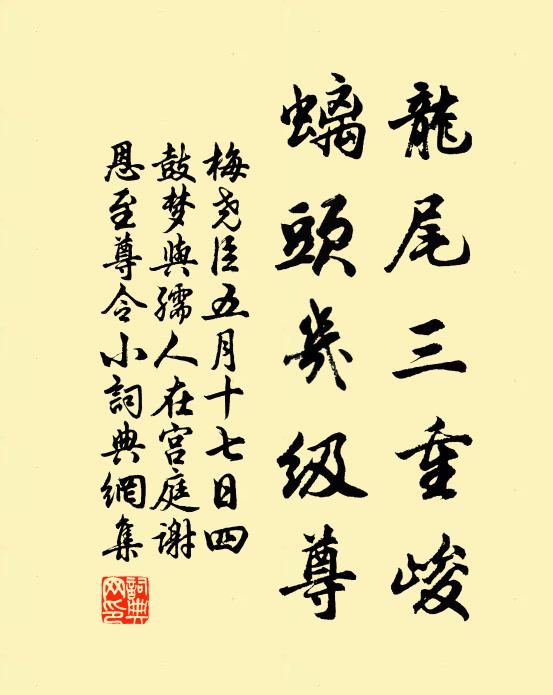 龍尾三重峻
螭頭幾級尊
梅尧臣五月十七日四
鼓梦與孺人在宫庭谢
恩至尊令小詞典網集
詞典网印